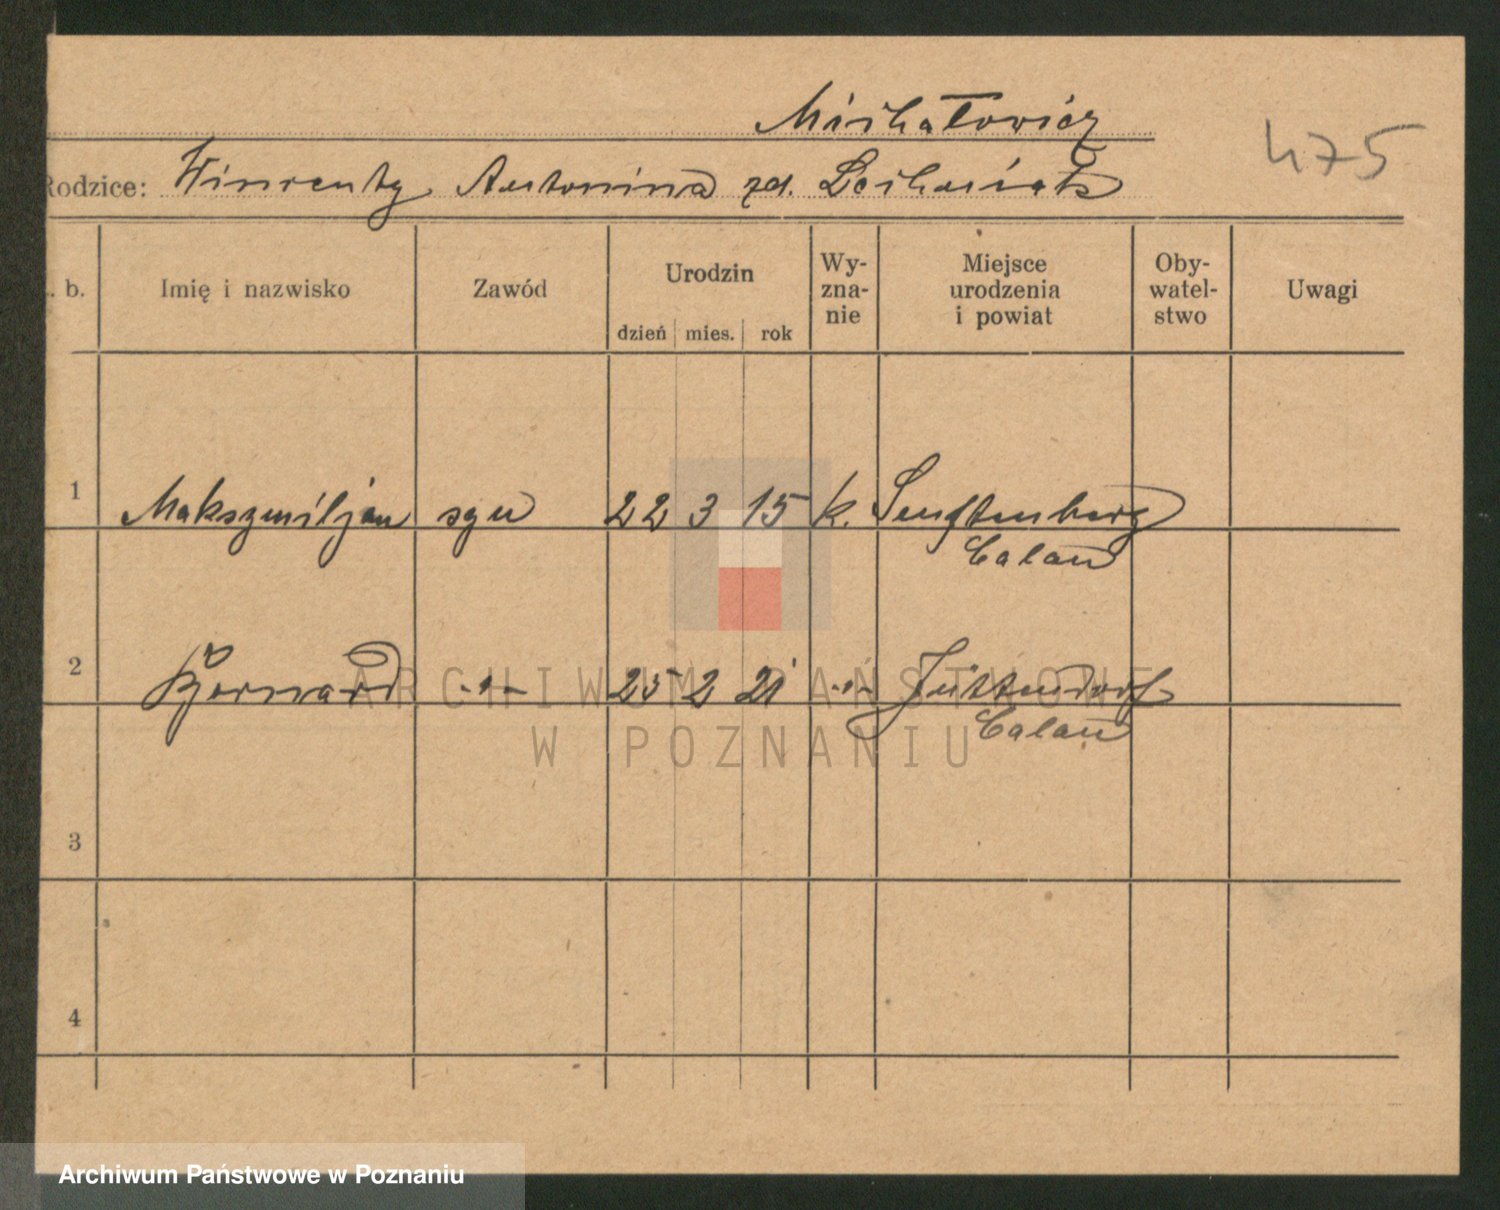 Michałowicz
475
Rodzice: Wincenty Antonina zd.
L. b. Imię i nazwisko Zawód Urodzin dzień mies. rok Wy-zna-nie Miejsce urodzenia i powiat Oby-watel-stwo Uwagi
1 Makszmiljan syn 22 3 15 k. Senftenberg
Calau
2 Bernard -"- 25 2 21 -"- Jüttendorf
Calau
3
4
ARCHIWUM PAŃSTWOWE
W POZNANIU
Archiwum Państwowe w Poznaniu